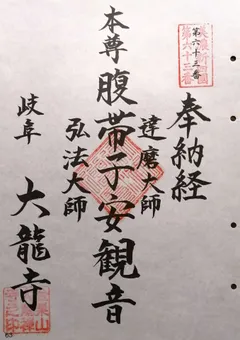 第六十三番
奉納経
達磨大師
本尊 腹帯子安観音
弘法大師
岐阜 大龍寺